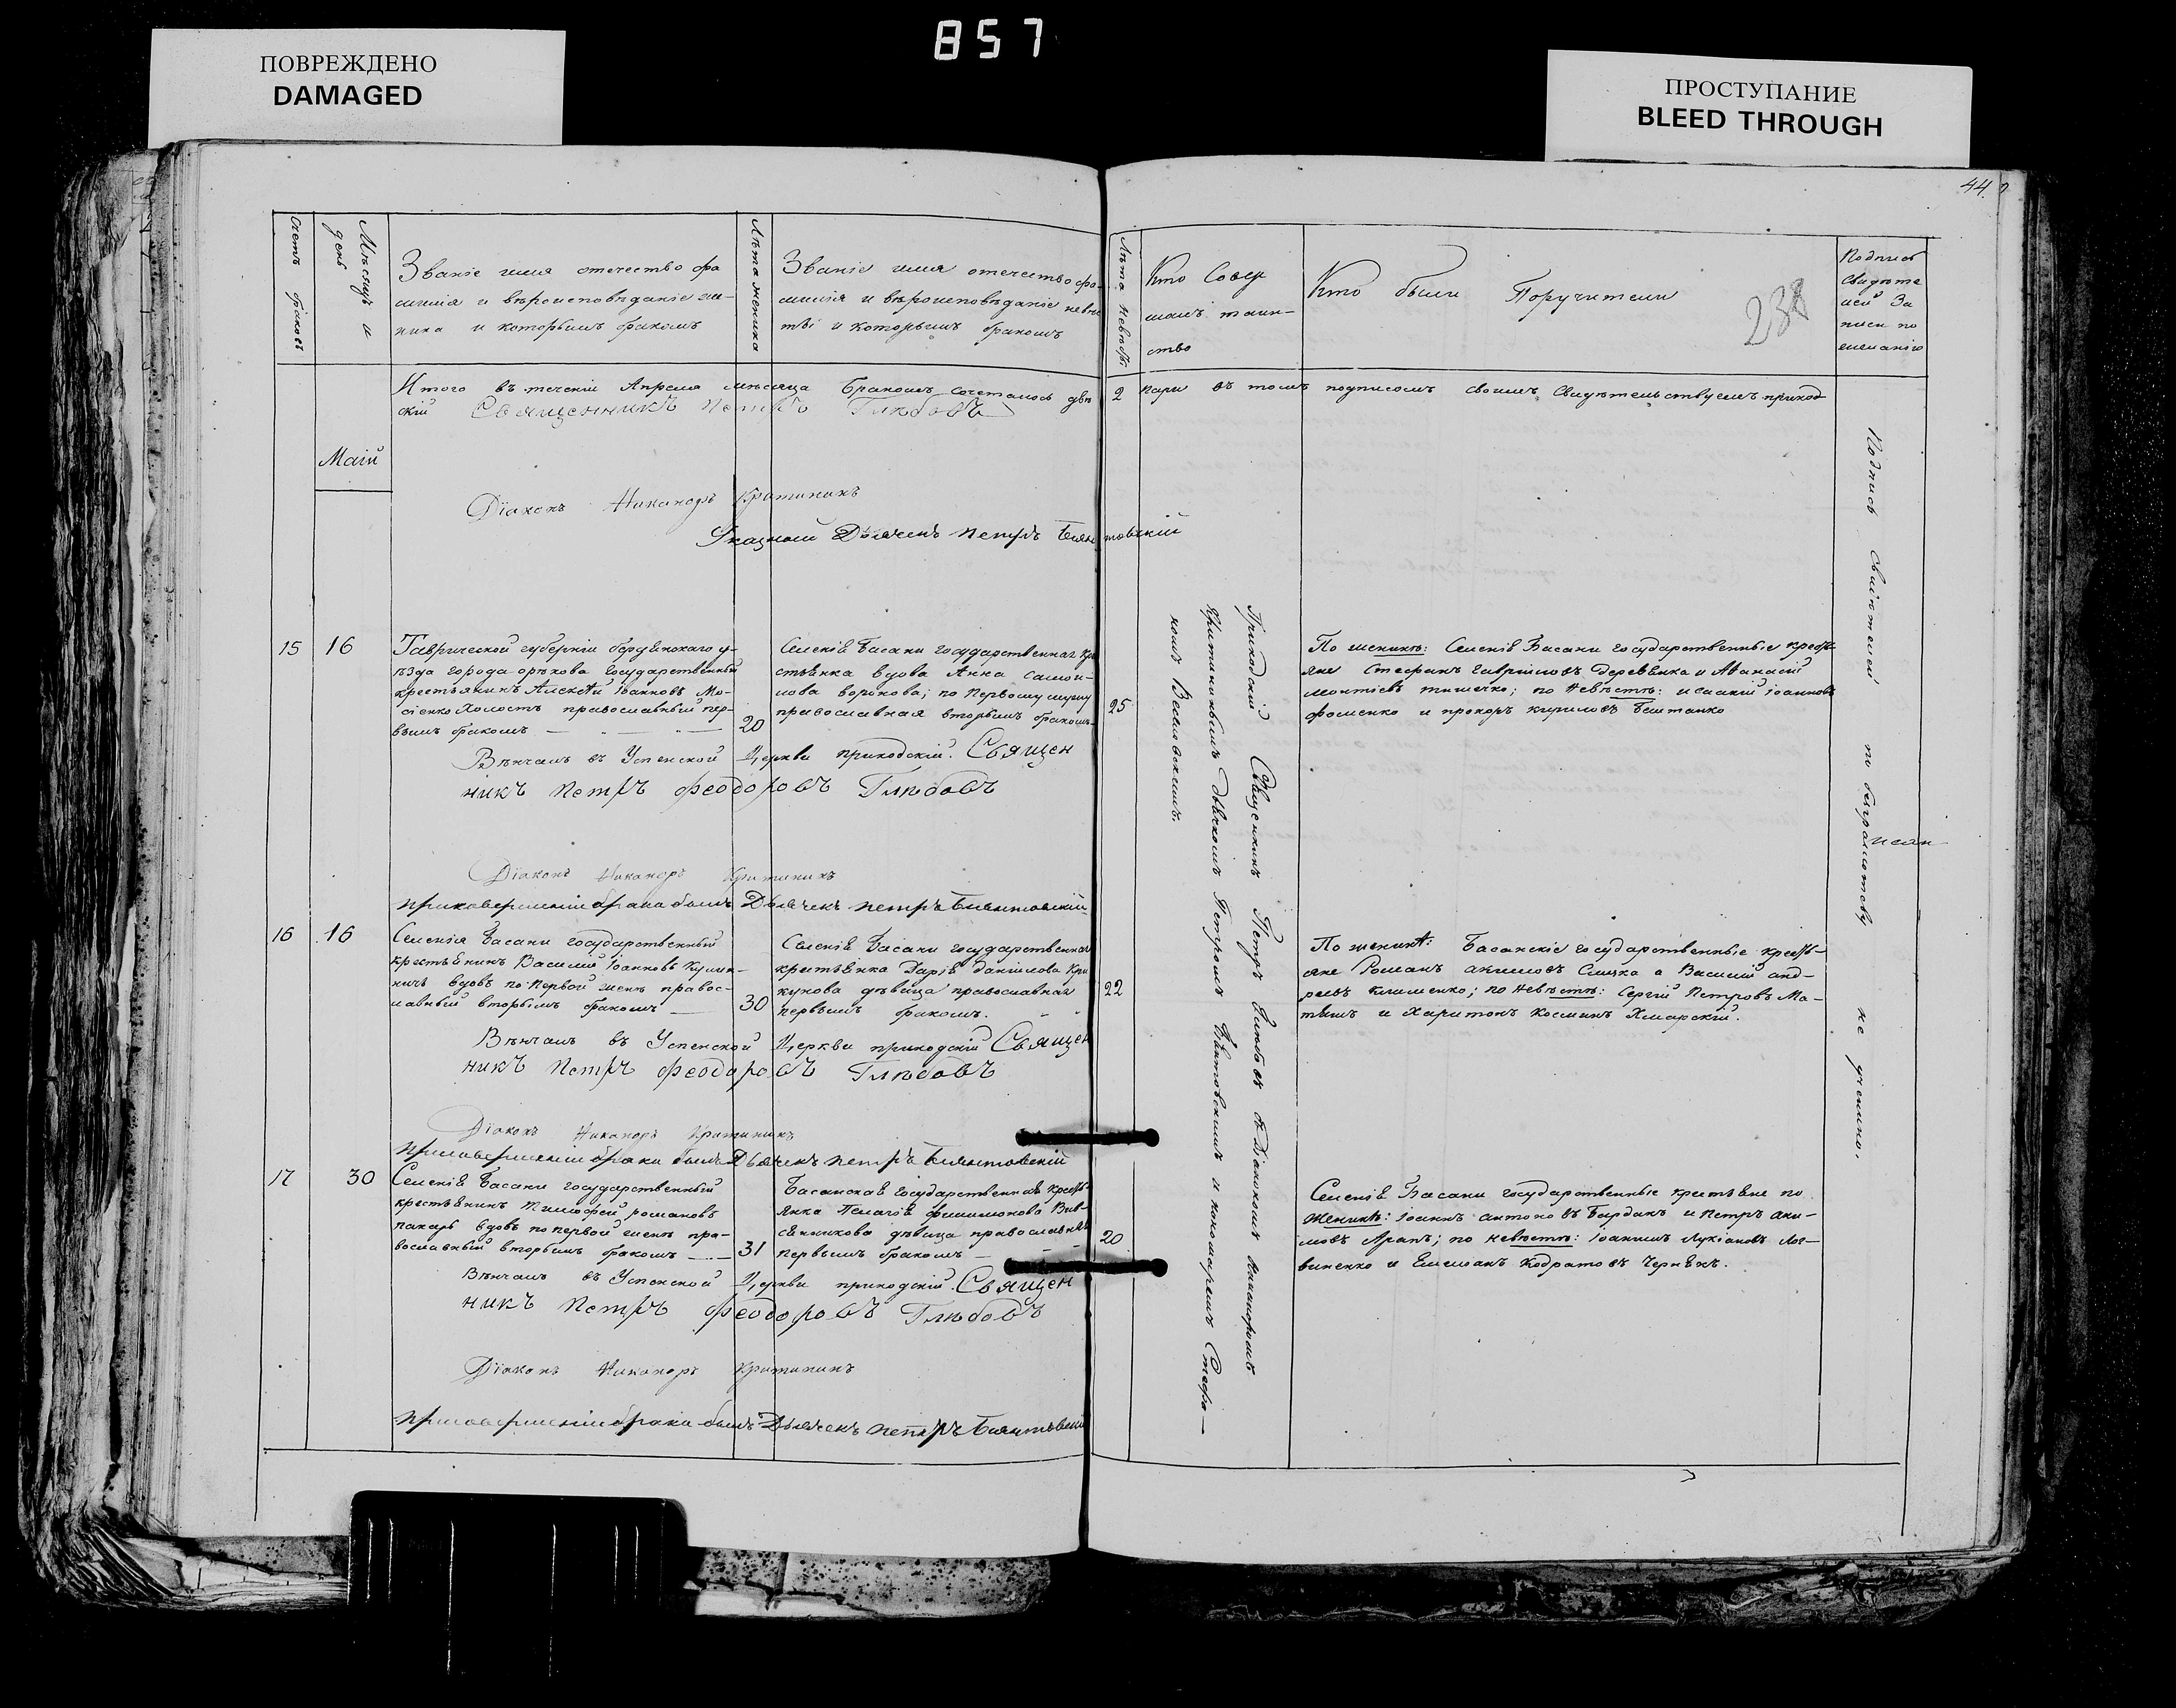 857
ПОВРЕЖДЕНО
DAMAGED
ПРОСТУПАНИЕ
BLEED THROUGH
44
238
Счетъ браковъ
Мѣсяцъ и
день
Званіе имя отечество фа
милія и вѣроисповѣданіе же-
ниха и которымъ бракомъ
Лѣта жениха
Званіе имя отечество фа-
милія и вѣроисповѣданіе невѣ
сты и которымъ бракомъ
Лѣта невѣсты
Кто Совер
шалъ таин-
ство
Кто были Поручители
Подпись
Свидѣте
лей За
писи по
желанію
Итого въ теченіи Апреля мѣсяца бракомъ сочеталось двѣ 2 пары въ томъ подписомъ своимъ Свидѣтельствуемъ приход
скій Священникъ Петръ Глѣбовъ
Маій
Діаконъ Никаноръ Критининъ
Указный Дьячекъ Петръ
15
16
Таврической губерніи бердянскаго у-
ѣзда города орѣхова Государственный
крестьянинъ Алексѣй Іоанновъ Мо-
сіенко Холостъ православный пер-
вымъ бракомъ
20
Селенія Басани государственная кре
стьянка вдова Анна самой-
лова воронова; по Первому мужу
православная вторымъ бракомъ
25
По жениху: Селенія Басани государственные кресть
яне Стефанъ Гавриловъ Деревянка и Аѳанасій
леонтіевъ тимечко; по Невѣстѣ: исаакій іоанновъ
фоменко и прохоръ кириловъ Бештанко
Вѣнчалъ въ Успенской Церкви приходскій Священ
никъ Петръ Феодоровъ Глѣбовъ
Діаконъ Никаноръ Критининъ
при совершеніи брака былъ Дьячекъ Петръ
16
16
Селенія Басани государственный
крестьянинъ Василій Іоанновъ
вдовъ по Первой женѣ правос-
лавный вторымъ бракомъ
30
Селенія Басани государственная
крестьянка Дарія даніилова Кри
кунова дѣвица православная
первымъ бракомъ.
22
По жениху: Басанскіе государственные кресть-
яне Романъ акимовъ Слизка а Василій анд-
реевъ клименко; по невѣстѣ: Сергій Петровъ Ма-
тяшъ и Харитонъ Косминъ Хмарскій.
Вѣнчалъ въ Успенской Церкви приходскій Священ
никъ Петръ Феодоровъ Глѣбовъ
Діаконъ Никаноръ Критининъ
при совершеніи брака былъ Дьячекъ Петръ
17
30
Селенія Басани государственный
крестьянинъ Тимофей романовъ
пахарь вдовъ по первой женѣ пра-
вославный вторымъ бракомъ
31
Басанская государственная кресть-
янка Пелагія филимонова Вив-
сянникова дѣвица православная
первымъ бракомъ
20
Селенія Басани государственные крестьяне по
Женихѣ: іоаннъ антоновъ Барданъ и Петръ аки-
мовъ Арапъ; по невѣстѣ: Іоакимъ Лукіановъ Лог-
виненко и Емелианъ Кодратовъ Чернякъ.
Вѣнчалъ въ Успенской Церкви приходскій Священ
никъ Петръ Феодоровъ Глѣбовъ
Діаконъ Никаноръ Критининъ
при совершеніи брака былъ Дьячекъ Петръ
Приходскій Священникъ Петръ Глѣбовъ съ Діакономъ Никаноромъ
Критининымъ дьячкомъ Петромъ и пономаремъ Стефа-
номъ
Подпись Свидѣтелей по безграмотству
не учинено.